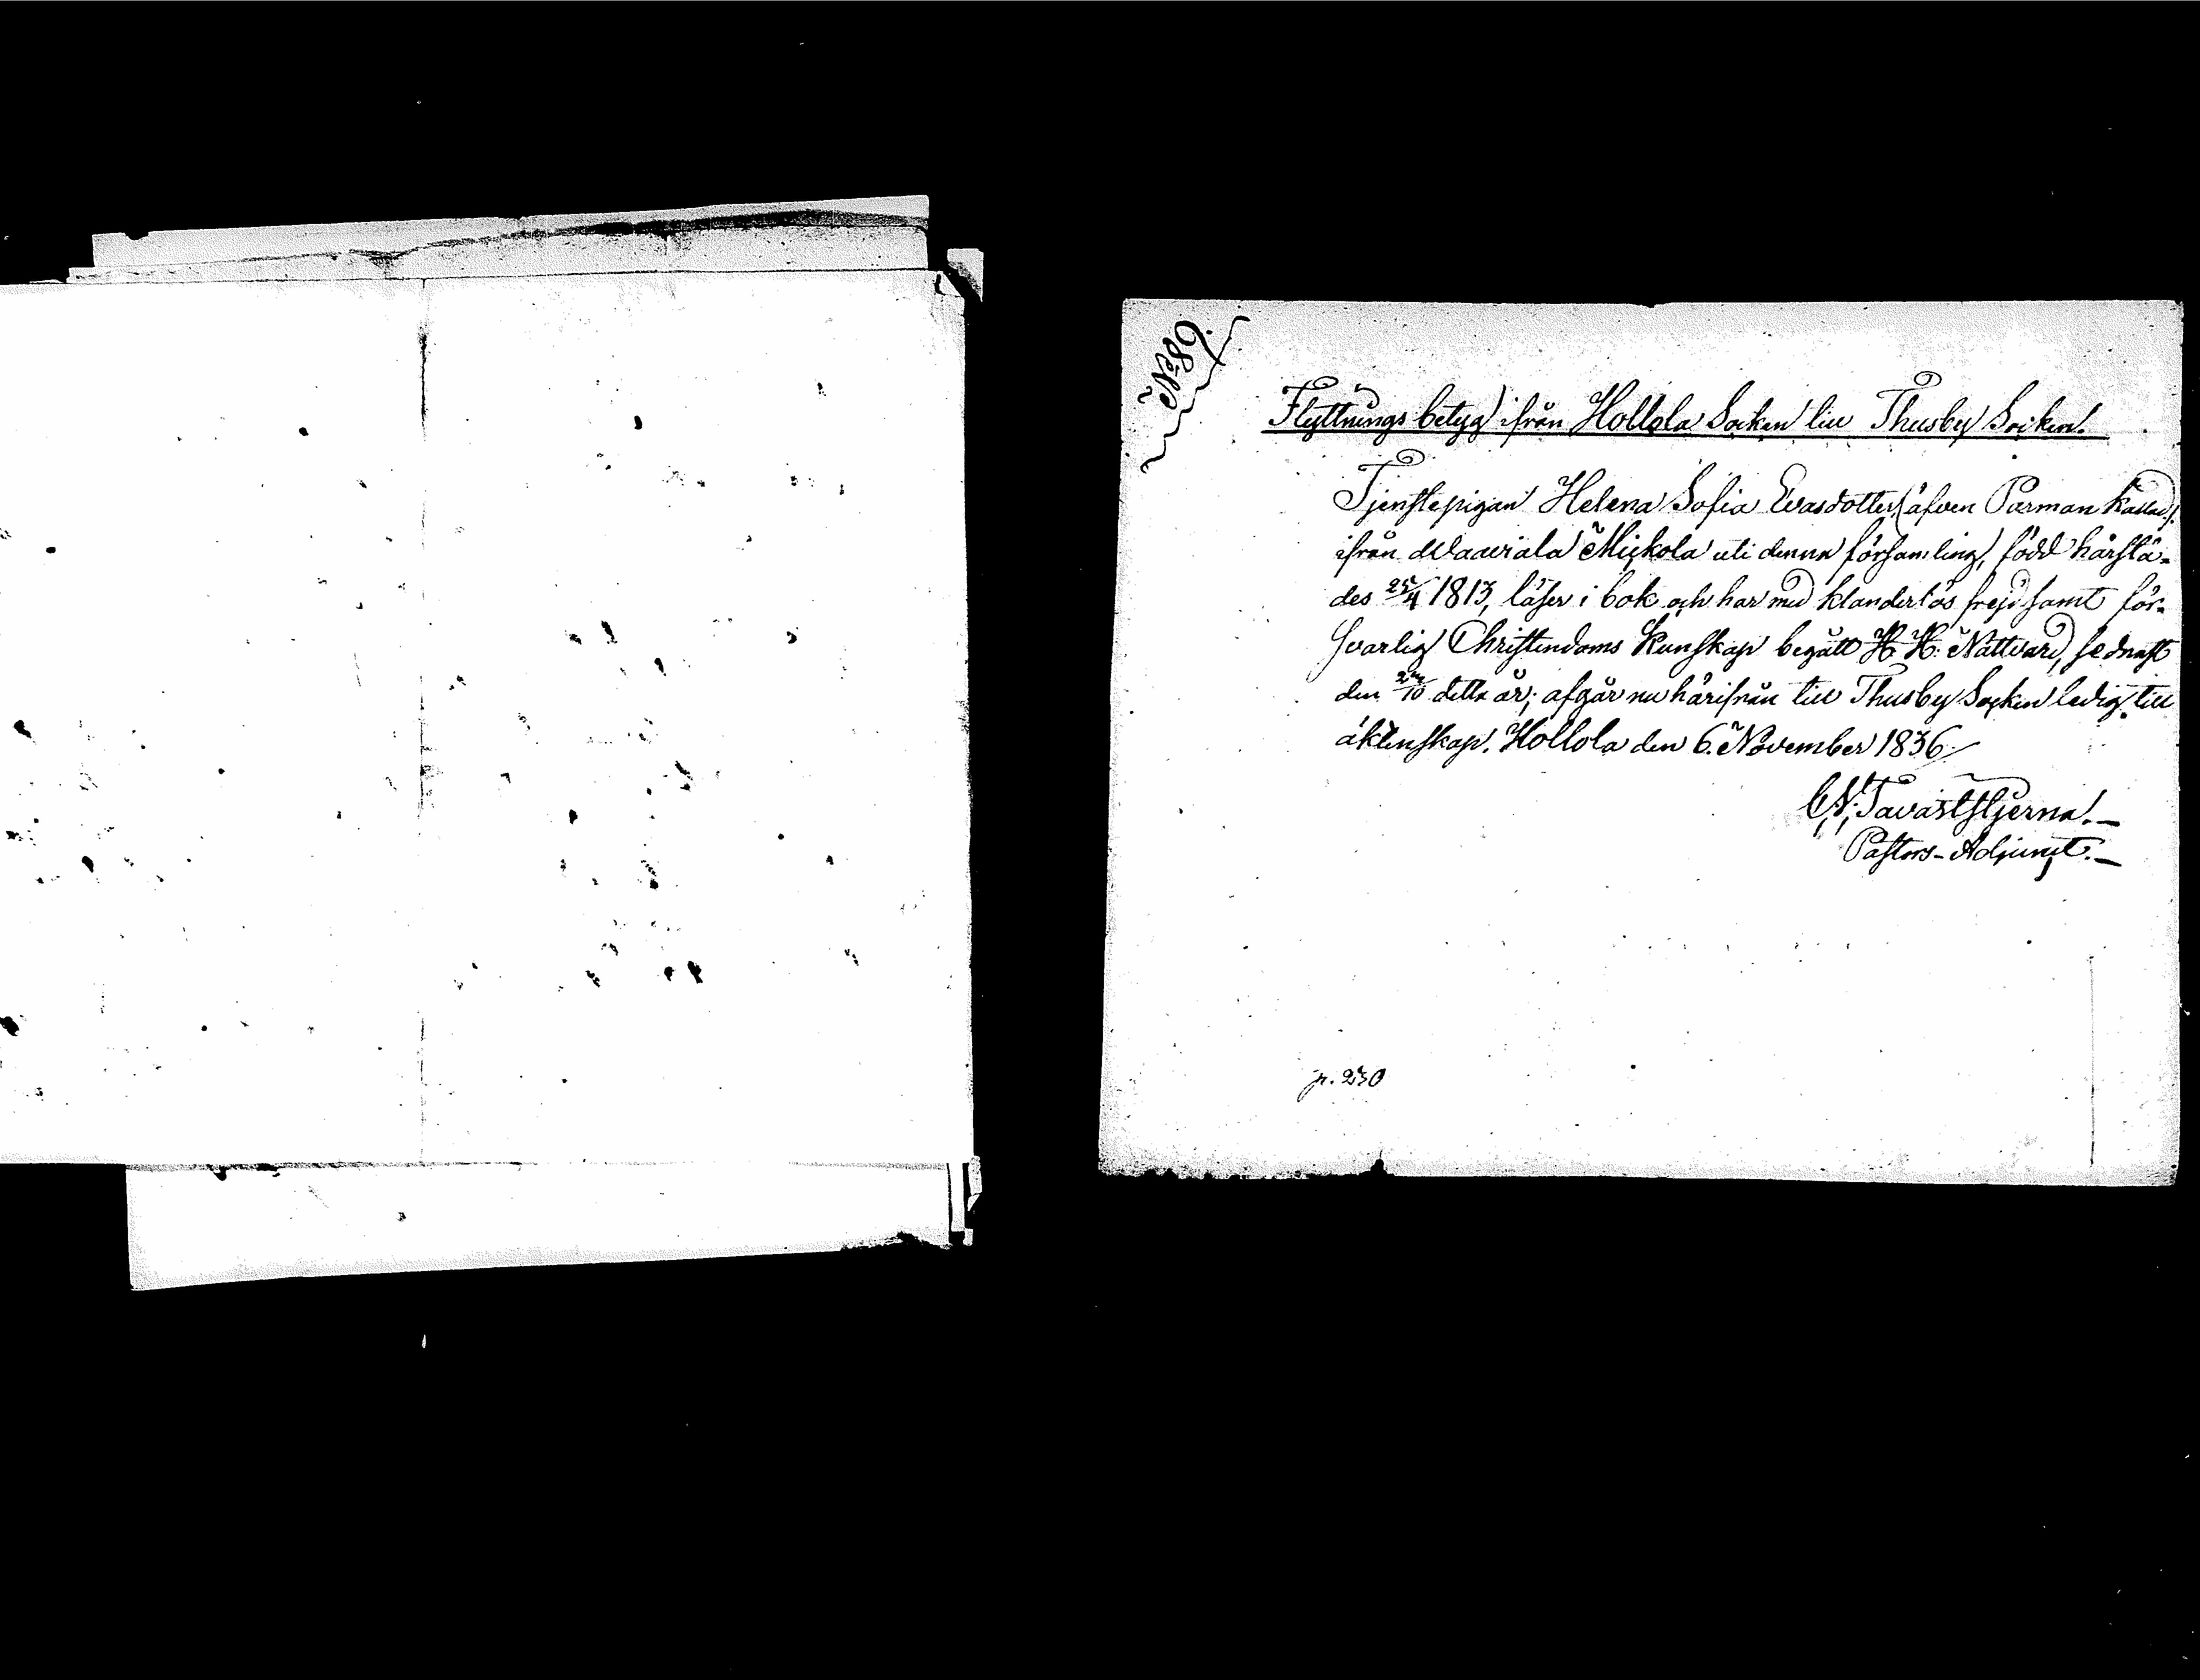 No 89.
Flyttnings betyg ifrån Hollola Socken till Thusby Socken.
Tjenstepigan Helena Sofia Evasdotter (äfven Parman kallad)
ifrån Mickola uti denna församling, född härstä-
des 25/4 1813, läser i bok och har med klanderlös frejd samt för-
svarlig Christendoms Kunskap begått H. H. Nattvard, sednast
den /10 detta år; afgår nu härifrån till Thusby Socken ledig till
äktenskap. Hollola den 6. November 1836.
Tavaststjerna.
Pastors-Adjunct.
p. 230